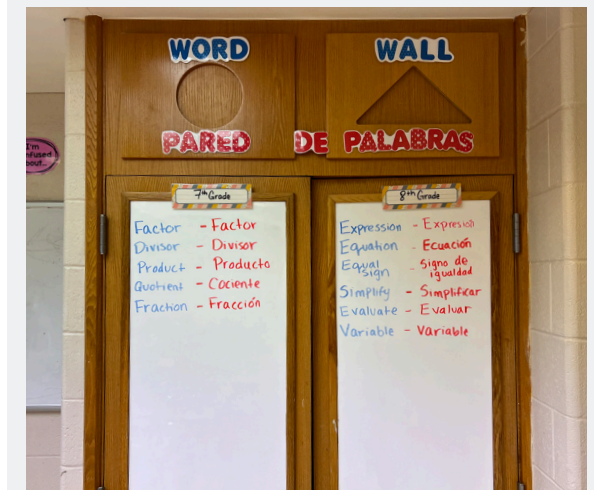 WORD WALL
PARED DE PALABRAS
I'm
7th Grade
Factor - Factor
Divisor - Divisor
Product - Producto
Quotient - Cociente
Fraction - Fracción
8th Grade
Expression - Expresión
Equation - Ecuación
Equal sign - Signo de igualdad
Simplify - Simplificar
Evaluate - Evaluar
Variable - Variable